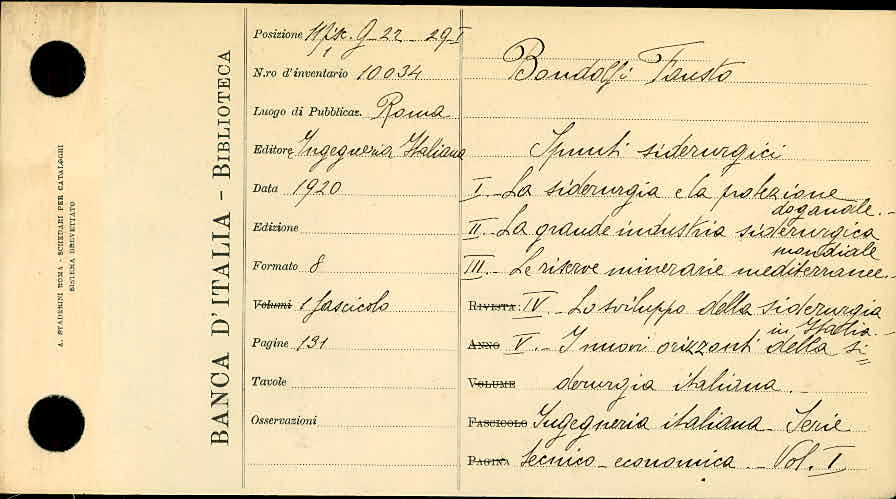 A. STADERINI ROMA - SCHEDARI PER CATALOGHI
SISTEMA BREVETTATO
BANCA D'ITALIA - BIBLIOTECA
Posizione G 22 29 I
N.ro d'inventario 10034
Luogo di Pubblicaz. Roma
Editore Ingegneria Italiana
Data 1920
Edizione
Formato 8
Volumi 1 fascicolo
Pagine 131
Tavole
Osservazioni
Bondolfi Fausto
Spunti siderurgici
I - La siderurgia e la protezione
doganale. -
II. - La grande industria siderurgica
mondiale
III. - Le riserve minerarie mediterranee. -
RIVISTA IV. - Lo sviluppo della siderurgia
in Italia -
ANNO V. - I nuovi orizzonti della si=
VOLUME derurgia italiana. -
FASCICOLO Ingegneria italiana - Serie
PAGINA tecnico-economica - Vol. I